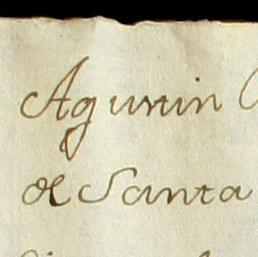 Agustin
de Santa